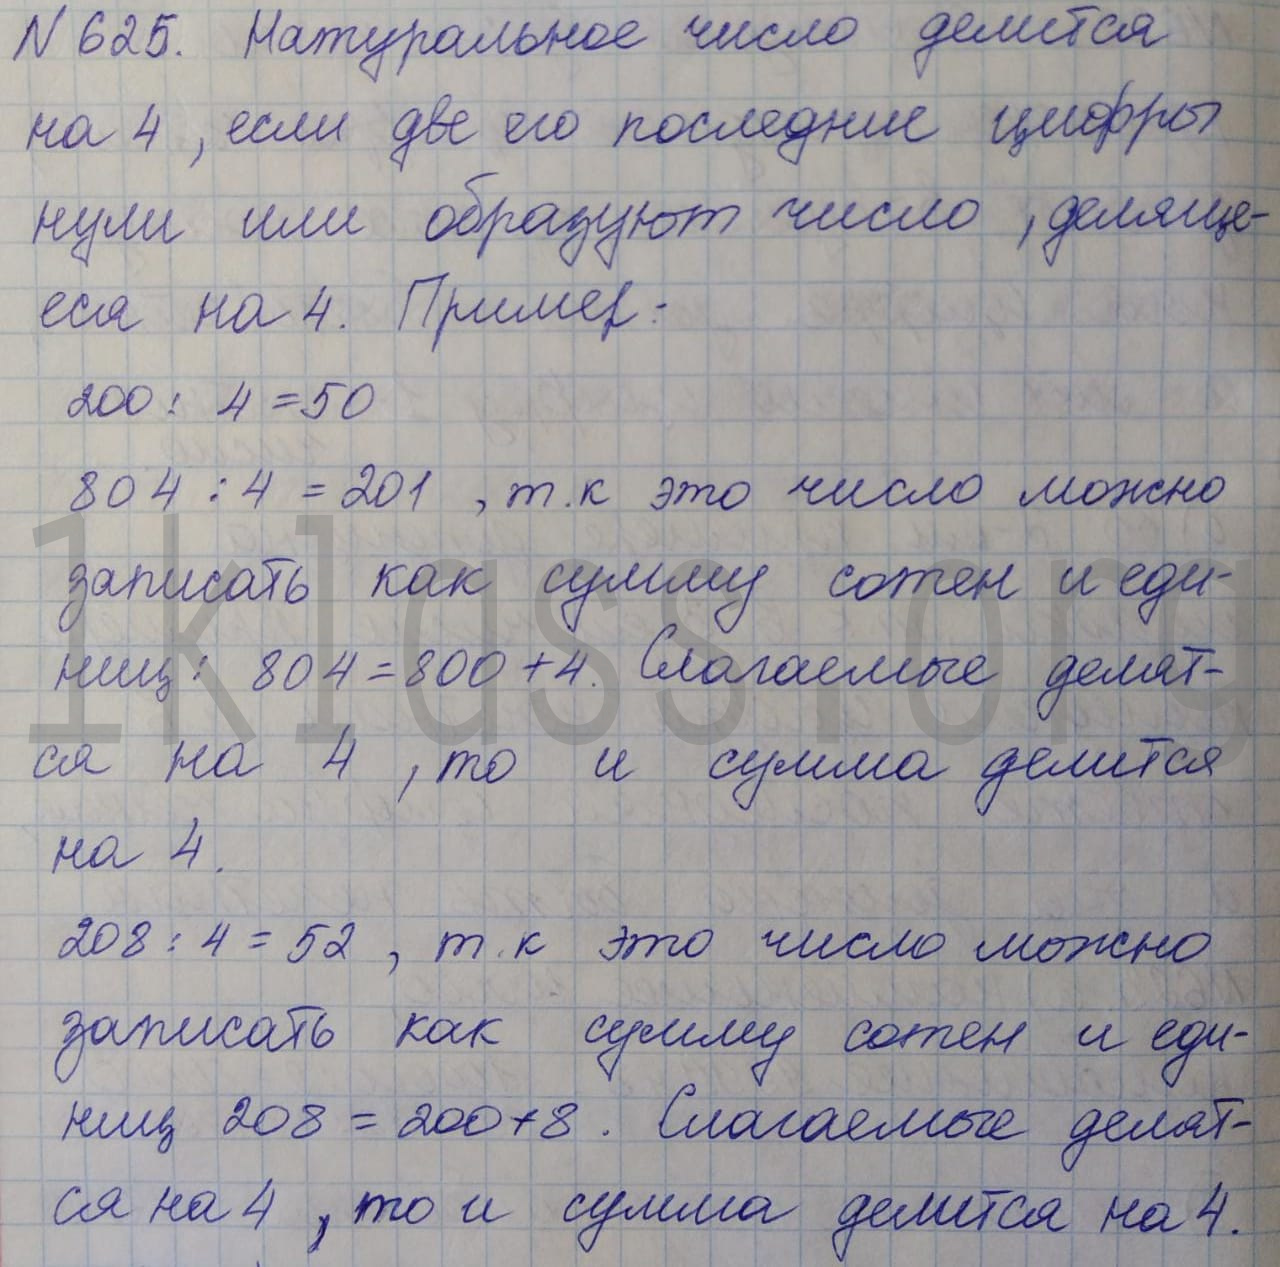 N 625. Натуральное число делится
на 4, если две его последние цифры
нули или образуют число, деляще-
еся на 4. Пример:
200 : 4 = 50
804 : 4 = 201, т.к это число можно
записать как сумму сотен и еди-
ниц: 804 = 800 + 4. Слагаемые делят-
ся на 4, то и сумма делится
на 4.
208 : 4 = 52, т.к это число можно
записать как сумму сотен и еди-
ниц 208 = 200 + 8. Слагаемые делят-
ся на 4, то и сумма делится на 4.
1klass.org